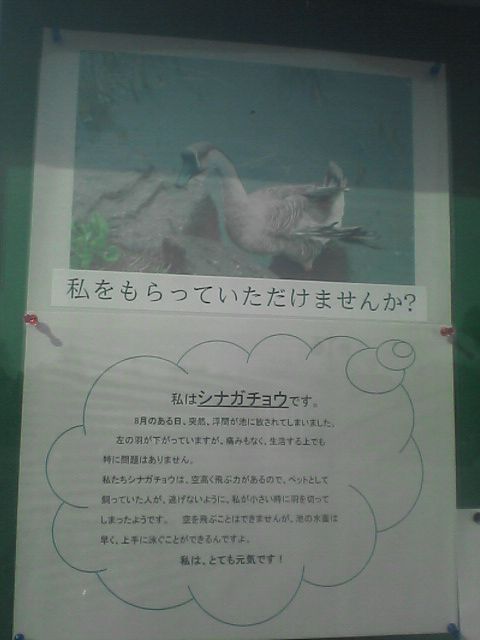 私をもらっていただけませんか?
私はシナガチョウです。
8月のある日、突然、浮間が池に放されてしまいました。
左の羽が下がっていますが、痛みもなく、生活する上でも
特に問題はありません。
私たちシナガチョウは、空高く飛ぶ力があるので、ペットとして
飼っていた人が、逃げないように、私が小さい時に羽を切って
しまったようです。 空を飛ぶことはできませんが、池の水面は
早く、上手に泳ぐことができるんですよ。
私は、とても元気です!